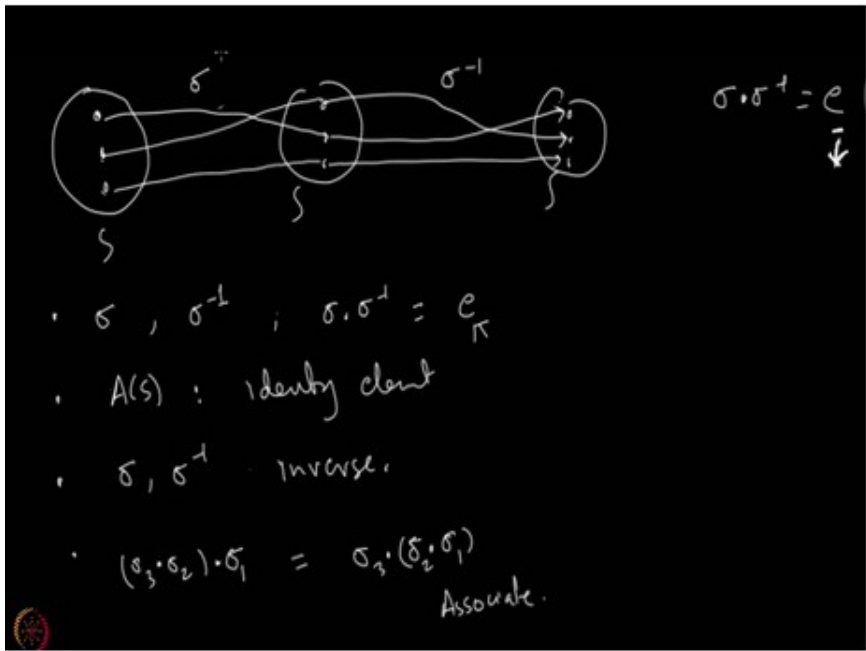 σ σ⁻¹ σ·σ⁻¹ = e
S S S
· σ , σ⁻¹ ; σ·σ⁻¹ = e
· A(S) : Identity element
· σ, σ⁻¹ inverse.
· (σ₃·σ₂)·σ₁ = σ₃·(σ₂·σ₁)
Associate.